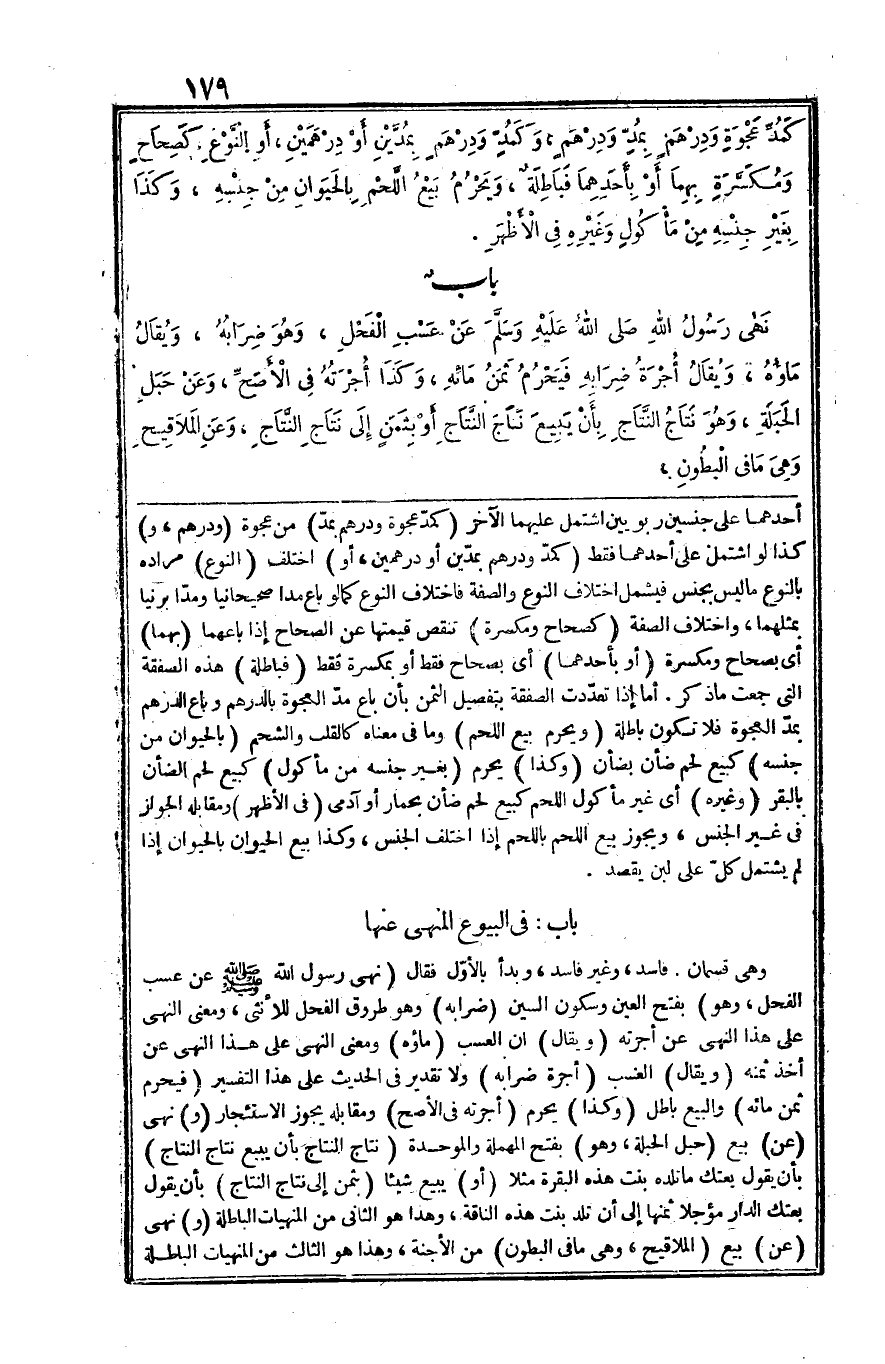 ١٧٩
كَمُدِّ عَجْوَةٍ وَدِرْهَمٍ بِمُدٍّ وَدِرْهَمٍ ، وَكَمُدٍّ وَدِرْهَمٍ بِمُدَّيْنِ أَوْ دِرْهَمَيْنِ ، أَوِ النَّوْعُ كَصِحَاحٍ
وَمُكَسَّرَةٍ بِهِمَا أَوْ بِأَحَدِهِمَا فَبَاطِلَةٌ ، وَيَحْرُمُ بَيْعُ اللَّحْمِ بِالْحَيَوَانِ مِنْ جِنْسِهِ ، وَكَذَا
بِغَيْرِ جِنْسِهِ مِنْ مَأْكُولٍ وَغَيْرِهِ فِى الْأَظْهَرِ .
بابٌ
نَهٰى رَسُولُ اللهِ صَلَى اللهُ عَلَيْهِ وَسَلَّمَ عَنْ عَسْبِ الْفَحْلِ ، وَهُوَ ضِرَابُهُ ، وَيُقَالُ
مَاؤُهُ ، وَيُقَالُ أُجْرَةُ ضِرَابِهِ فَيَحْرُمُ ثَمَنُ مَائِهِ ، وَكَذَا أُجْرَتُهُ فِى الْأَصَحِّ ، وَعَنْ حَبَلِ
الْحَبَلَةِ ، وَهُوَ نَتَاجُ النَّتَاجِ بِأَنْ يَبِيعَ نَتَاجَ النَّتَاجِ أَوْ بِثَمَنٍ إِلَى نَتَاجِ النَّتَاجِ ، وَعَنِ الْمَلَاقِيحِ
وَهِىَ مَافى الْبُطُونِ ،
أحدهما على جنسين ربويين اشتمل عليهما الآخر ( كمدّ عجوة ودرهم بمدّ ) من عجوة ( ودرهم ، و )
كذا لو اشتمل على أحدهما فقط ( كمدّ ودرهم بمدّين أو درهمين ، أو ) اختلف ( النوع ) مراده
بالنوع ماليس بجنس فيشمل اختلاف النوع والصفة فاختلاف النوع كمالو باع مدا صيحانيا ومدّا برنيا
بمثلهما ، واختلاف الصفة ( كصحاح ومكسرة ) تنقص قيمتها عن الصحاح إذا باعهما ( بهما )
أى بصحاح ومكسرة ( أو بأحدهما ) أى بصحاح فقط أو بمكسرة فقط ( فباطلة ) هذه الصفقة
التى جمعت ماذكر . أما إذا تعدّدت الصفقة بتفصيل الثمن بأن باع مدّ العجوة بالدرهم وباع الدرهم
بمدّ العجوة فلا تكون باطلة ( ويحرم بيع اللحم ) وما فى معناه كالقلب والشحم ( بالحيوان من
جنسه ) كبيع لحم ضأن بضأن ( وكذا ) يحرم ( بغير جنسه من مأكول ) كبيع لحم الضأن
بالبقر ( وغيره ) أى غير مأكول اللحم كبيع لحم ضأن بحمار أو آدمى ( فى الأظهر ) ومقابله الجواز
فى غير الجنس ، ويجوز بيع اللحم باللحم إذا اختلف الجنس ، وكذا بيع الحيوان بالحيوان إذا
لم يشتمل كلّ على لبن يقصد .
باب : فى البيوع المنهى عنها
وهى قسمان . فاسد ، وغير فاسد ، وبدأ بالأوّل فقال ( نهى رسول الله ﷺ عن عسب
الفحل ، وهو ) بفتح العين وسكون السين ( ضرابه ) وهو طروق الفحل للأنثى ، ومعنى النهى
على هذا النهى عن أجرته ( ويقال ) ان العسب ( ماؤه ) ومعنى النهى على هذا النهى عن
أخذ ثمنه ( ويقال ) العسب ( أجرة ضرابه ) ولا تقدير فى الحديث على هذا التفسير ( فيحرم
ثمن مائه ) والبيع باطل ( وكذا ) يحرم ( أجرته فى الأصح ) ومقابله يجوز الاستئجار ( و ) نهى
( عن ) بيع ( حبل الحبلة ، وهو ) بفتح المهملة والموحدة ( نتاج النتاج بأن يبيع نتاج النتاج )
بأن يقول بعتك ماتلده بنت هذه البقرة مثلا ( أو ) يبيع شيئا ( بثمن إلى نتاج النتاج ) بأن يقول
بعتك الدار مؤجلا ثمنها إلى أن تلد بنت هذه الناقة ، وهذا هو الثانى من المنهيات الباطلة ( و ) نهى
( عن ) بيع ( الملاقيح ، وهى مافى البطون ) من الأجنة ، وهذا هو الثالث من المنهيات الباطلة